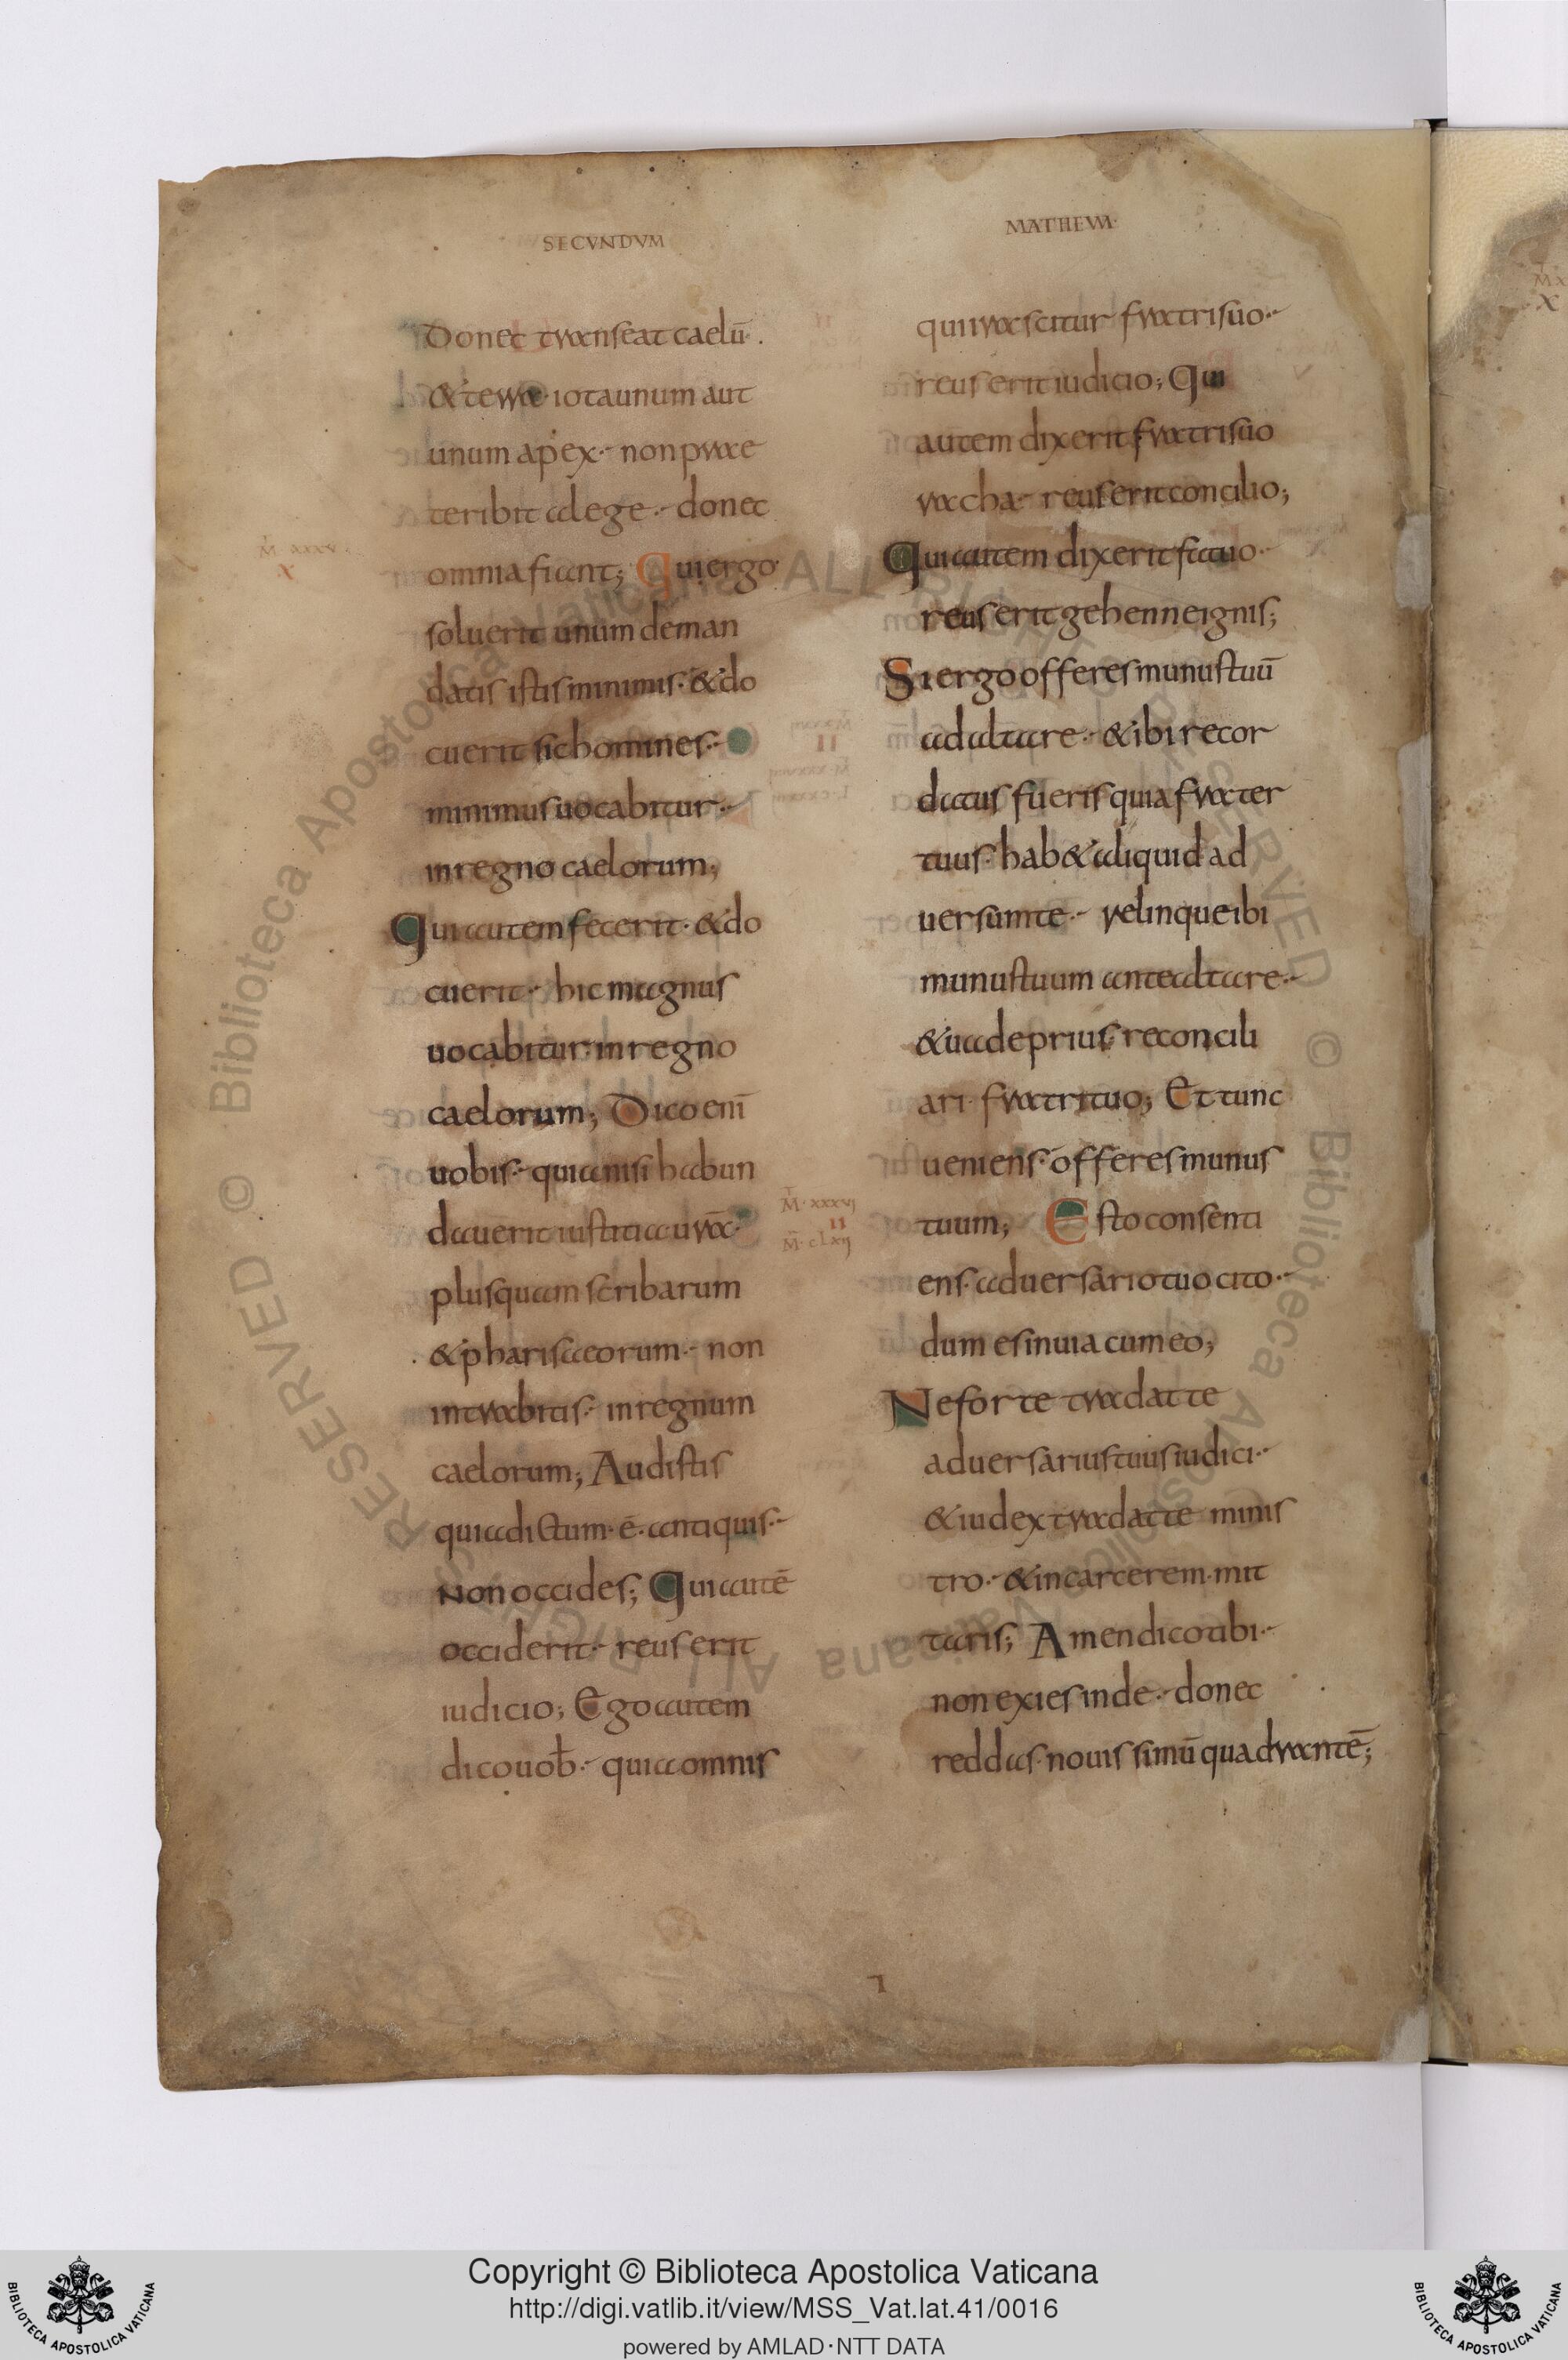 SECVNDVM
donec transeat caelū.
& terra· iota unum aut
unum apex·- non prae
teribit a lege·- donec
omnia fiant; Qui ergo
M̄ XXXV
X
soluerit unum de man
datis istis minimis· & do
cuerit sic homines·-
minimus uocabitur·-
in regno caelorum;
Qui autem fecerit· & do
cuerit·- hic magnus
uocabitur· in regno
caelorum; Dico enī
uobis·- quia nisi habun
dauerit iustitia urā·
M̄·XXXVI
II
M̄·CLXII
plus quam scribarum
& pharisaeorum·- non
intrabitis·- in regnum
caelorum; Audistis
quia dictum·ē· antiquis·-
Non occides; Qui autē
occiderit·- reus erit
iudicio; Ego autem
dico uob̄·- quia omnis
MATHEVM·
qui irascitur fratri suo·-
reus erit iudicio; Qui
autem dixerit fratri suo
racha·- reus erit concilio;
Qui autem dixerit fatuo·-
reus erit gehenne ignis;
Si ergo offeres munus tuū
ad altare·- & ibi recor
datus fueris quia frater
tuus· hab& aliquid ad
uersum te·- relinque ibi
munus tuum ante altare·-
& uade prius· reconcili
ari· fratri tuo; Et tunc
ueniens· offeres munus
tuum; Esto consenti
ens· aduersario tuo cito·-
dum es in uia cum eo;
Ne forte tradat te
aduersarius tuus iudici·-
& iudex tradat te minis
tro·- & in carcerem· mit
taris; Amen dico tibi·-
non exies inde·- donec
reddas· nouissimū quadrantē;
Copyright © Biblioteca Apostolica Vaticana
http://digi.vatlib.it/view/MSS_Vat.lat.41/0016
powered by AMLAD·NTT DATA
BIBLIOTECA APOSTOLICA VATICANA
BIBLIOTECA APOSTOLICA VATICANA